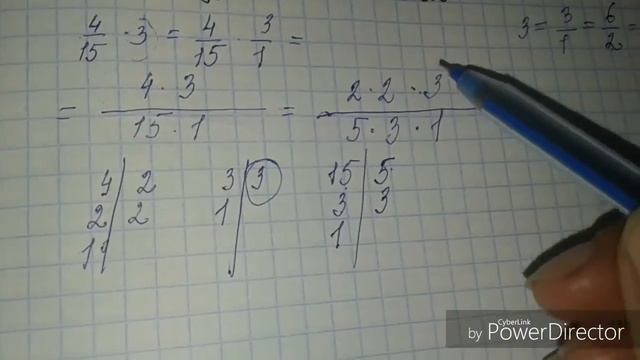 4/15 · 3 = 4/15 · 3/1 =
3 = 3/1 = 6/2 =
= 4 · 3 / 15 · 1 = 2 · 2 · 3 / 5 · 3 · 1
4 | 2 3 | 3 15 | 5
2 | 2 1 | 3 | 3
1 | 1 |
by CyberLink PowerDirector